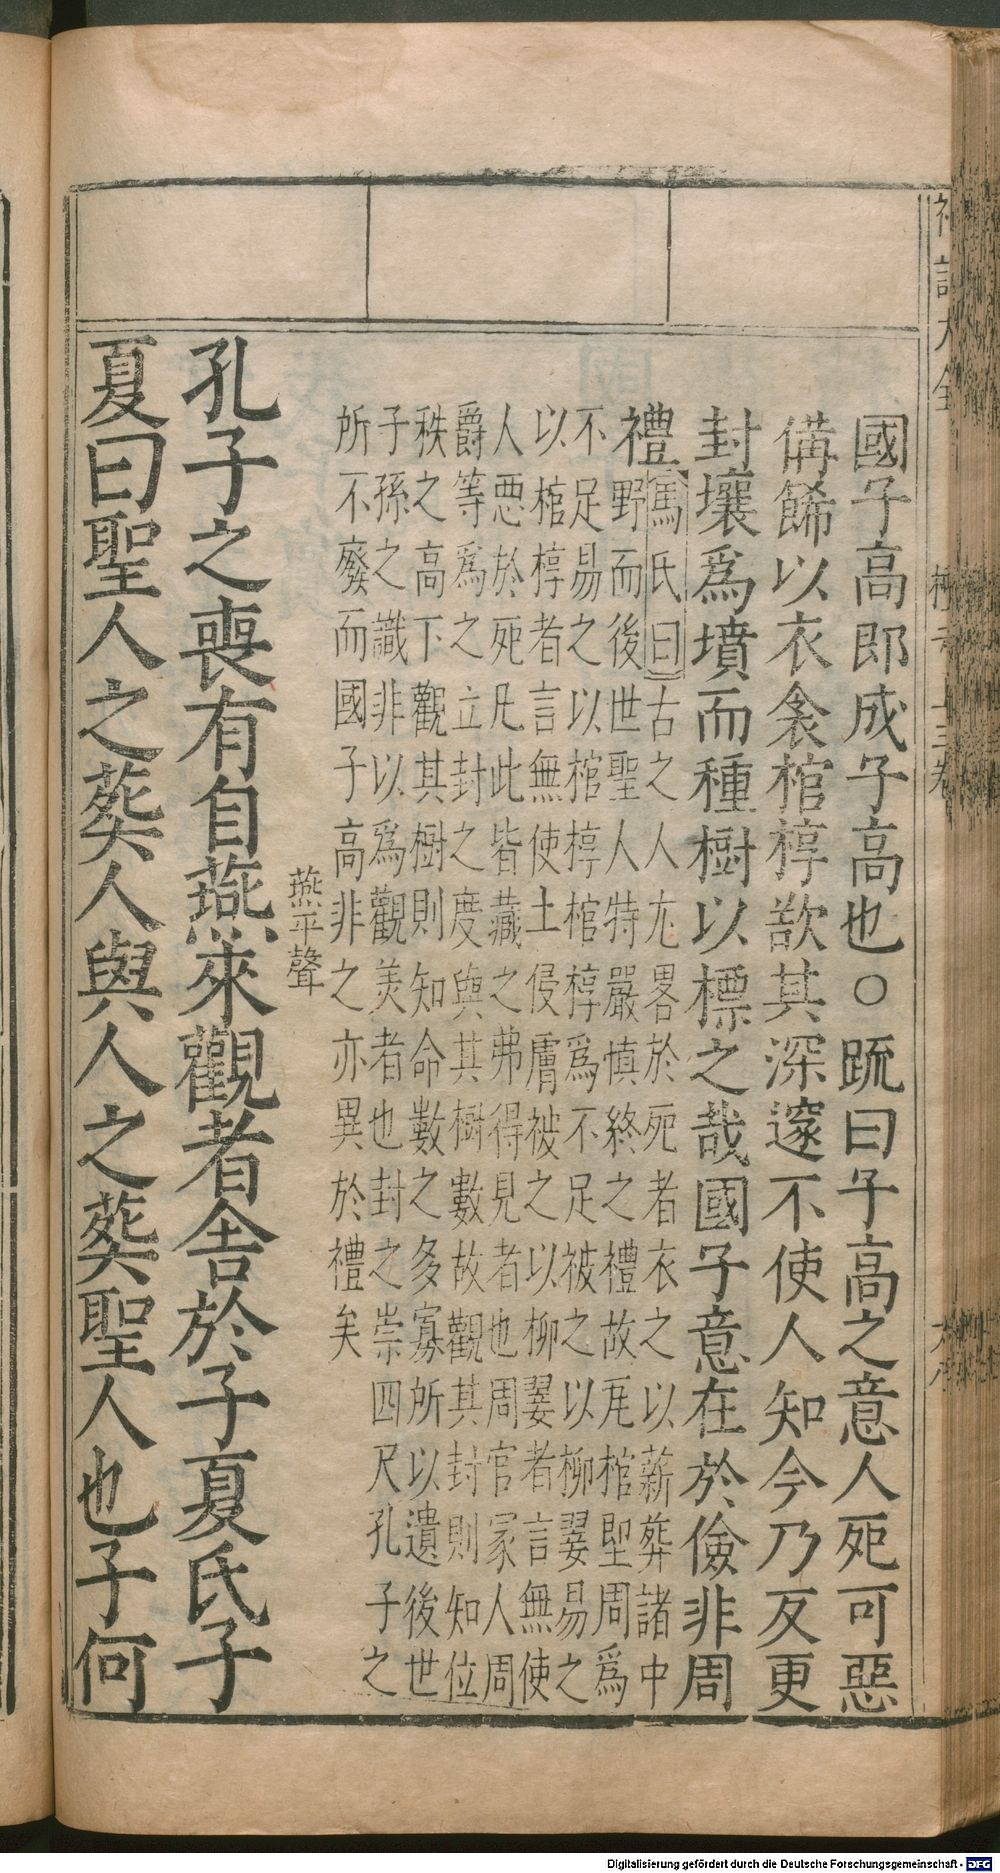 國子高郎成子高也○䟽曰子高之意人死可惡
備飾以衣衾棺椁欲其深邃不使人知今乃反更
封壤爲墳而種樹以標之哉國子意在於儉非周
禮
馬氏曰古之人尢畧於死者衣之以薪葬諸中
野而後世聖人特嚴慎終之禮故瓦棺堲周爲
不足易之以棺椁棺椁爲不足被之以柳翣易之
以棺椁者言無使土侵膚被之以柳翣者言無使
人惡於死凡此皆藏之弗得見者也周官冡人周
爵等爲之立封之度與其樹數故觀其封則知位
秩之高下觀其樹則知命數之多寡所以遺後世
子孫之識非以爲觀美者也封之崇四尺孔子之
所不廢而國子高非之亦異於禮矣
燕平聲
孔子之喪有自燕來觀者舍於子夏氏子
夏曰聖人之葬人與人之葬聖人也子何
Digitalisierung gefördert durch die Deutsche Forschungsgemeinschaft - DFG